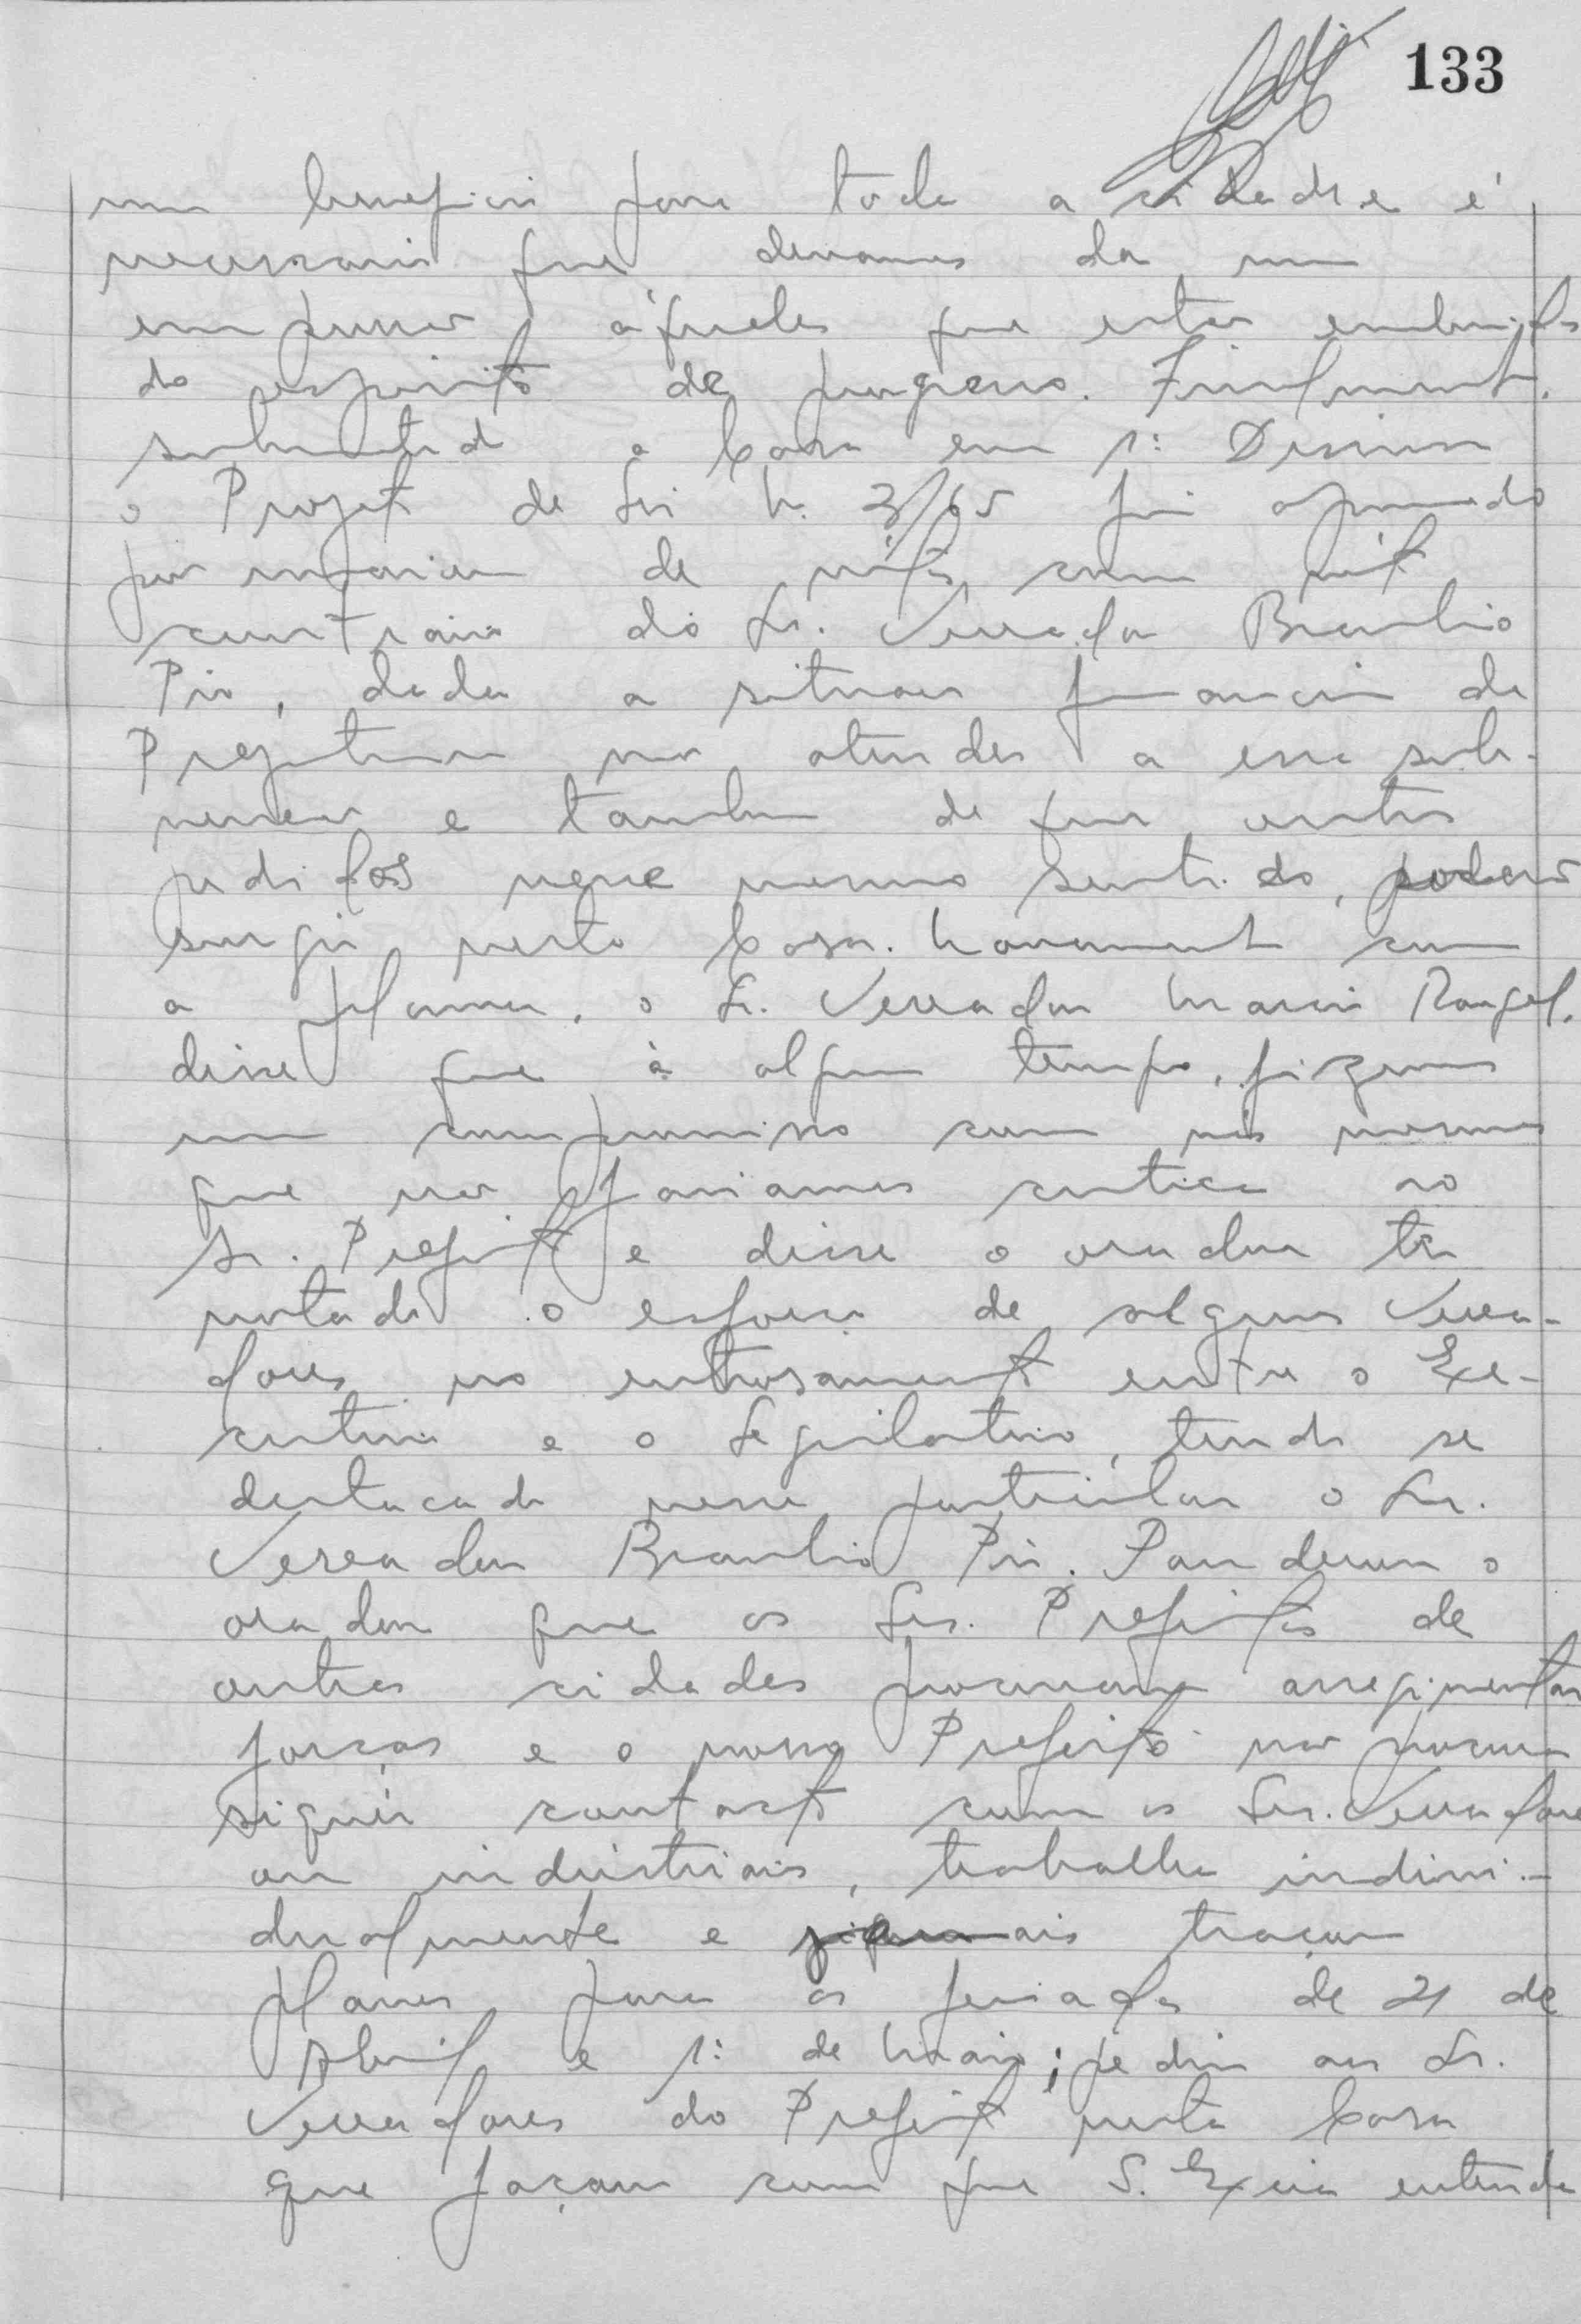 133
um beneficio para toda a cidade e é
necessario que devamos da um
empurrão áqueles que estão embuidos
do espirito de progresso. Finalmente,
submetido a Casa em 1ª Discussão
o Projeto de Lei N. 3/65 foi aprovado
por maioria de votos, com voto
contrario do Sr. Vereador Braulio
Pio, dada a situação financeira da
Prefeitura não atender a essa sub-
venção e tambem de que outros
pedidos nesse mesmo sentido, poderão
surgir nesta Casa. Novamente com
a palavra, o Sr. Vereador Mario Rangel,
disse que à algum tempo, fizemos
um compromisso com nós mesmos
que não fariamos critica ao
Sr. Prefeito e disse o orador ter
notado o esforço de alguns Verea-
dores no entrosamento entre o Exe-
cutivo e o Legislativo, tendo se
destacado nesse particular o Sr.
Vereador Braulio Pio. Ponderou o
orador que os Srs. Prefeitos de
outras cidades procuram arregimentar
forças e o nosso Prefeito não procura
siquer contacto com os Srs. Vereadores
ou industriais, trabalha indivi-
dualmente e jamais traçou
planos para os feriados de 21 de
Abril e 1º de Maio; pediu aos Sr.
Vereadores do Prefeito nesta Casa
que façam com que S. Excia entenda